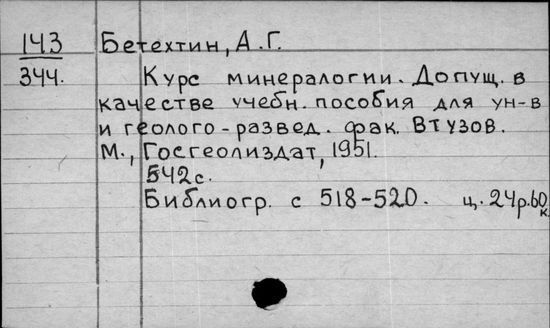 143 Бетехтин, А.Г.
344. Курс минералогии. Допущ. в
качестве учебн. пособия для ун-в
и геолого-развед. фак. Втузов.
М., Госгеолиздат, 1951.
542с.
Библиогр. с 518-520. ц. 24р.60к.